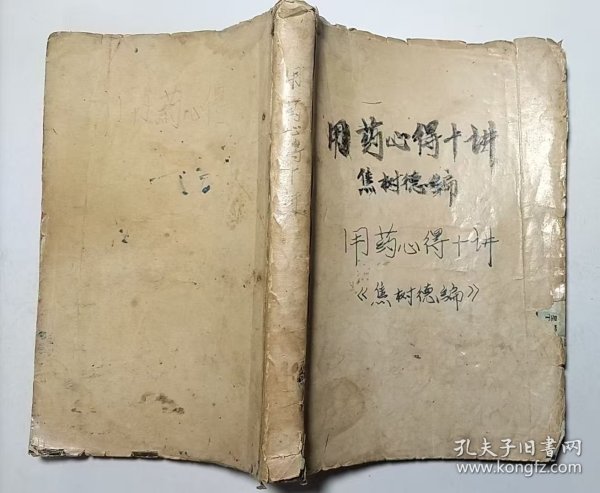 用药心得十讲
焦树德编
用药心得十讲
《焦树德编》
用药心得十讲
孔夫子旧书网
www.kongfz.com